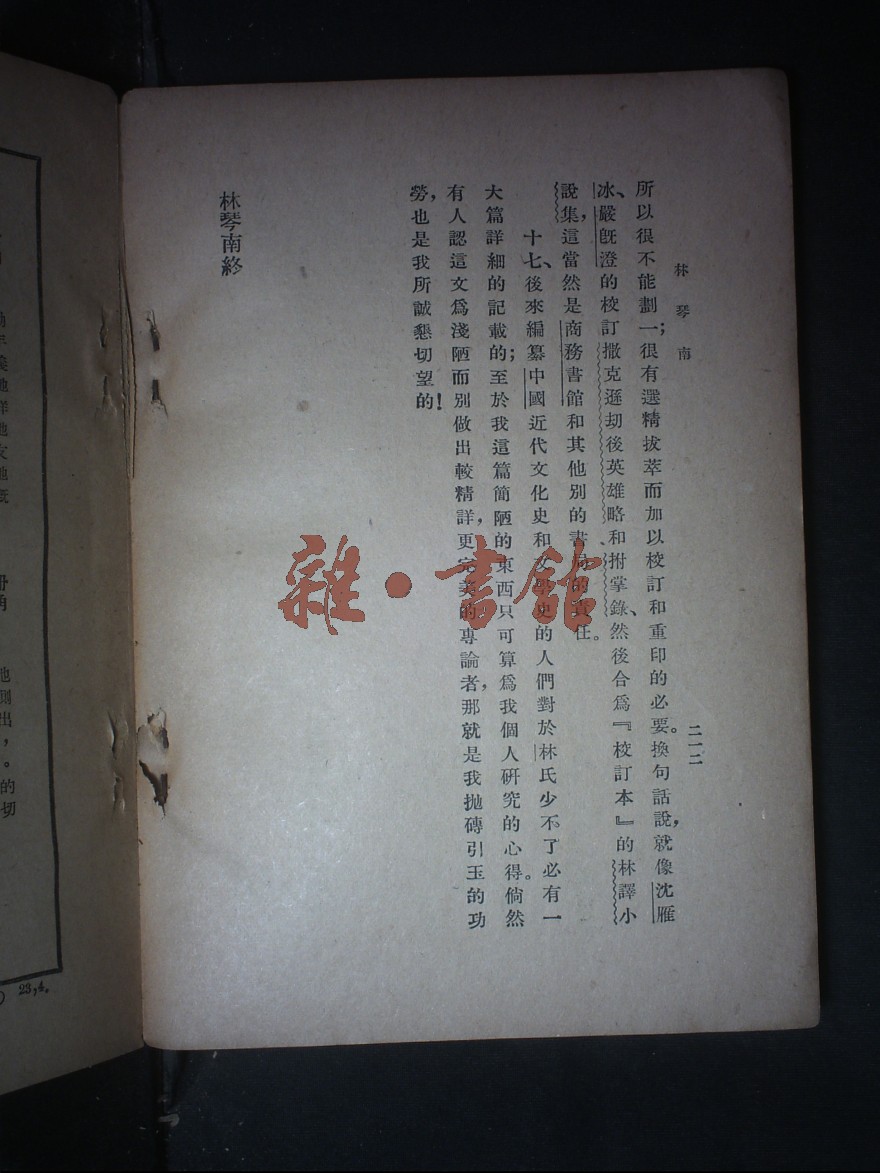 林琴南
二一二
所以很不能劃一；很有選精拔萃而加以校訂和重印的必要。換句話說，就像沈雁
冰、嚴旣澄的校訂撒克遜劫後英雄略和拊掌錄、然後合爲『校訂本』的林譯小
說集，這當然是商務書館和其他別的書局的責任。
十七、後來編纂中國近代文化史和文學史的人們對於林氏少不了必有一
大篇詳細的記載的；至於我這篇簡陋的東西只可算爲我個人硏究的心得。倘然
有人認這文爲淺陋而別做出較精詳，更完美的專論者，那就是我拋磚引玉的功
勞，也是我所誠懇切望的！
林琴南終
雜·書館
的
切
23,4.